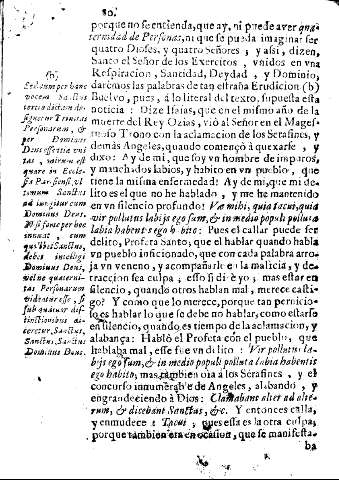 80.
porque no se entienda, que ay, ni puede aver qua-
ternidad de Personas, ni que se pueda imaginar ser
quatro Dioses, y quatro Señores; y assi, dizen,
Santo el Señor de los Exercitos, vnidos en vna
Respiracion, Santidad, Deydad, y Dominio,
darèmos las palabras de tan estraña Erudicion. (b)
Buelvo, pues, à lo literal del texto, supuesta esta
noticia: Dize Isaias, que en el mismo año de la
muerte del Rey Ozias, viò al Señor en el Mages-
tuoso Trono con la aclamacion de los Serafines, y
demàs Angeles, quando començò à quexarse, y
dixo: Ay de mi, que soy vn hombre de impuros,
y manchados labios, y habito en vn pueblo, que
tiene la misma enfermedad! Ay de mi, que mi de-
lito es el que no he hablado, y me he mantenido
en vn silencio profundo: Væ mihi, quia tacui, quia
vir pollutus labijs ego sum, & in medio populi polluta
labia habentis ego habito: Pues el callar puede ser
delito, Profeta Santo; que el hablar quando habla
vn pueblo inficionado, que con cada palabra arro-
ja vn veneno, y acompañarle en la malicia, y de-
traccion sea culpa, esso si de yo; mas estar en
silencio, quando otros hablan mal, merece casti-
go? Y como que lo merece, porque tan pernicio-
so es hablar lo que se debe no hablar, como estarse
en silencio, quando es tiempo de la aclamacion, y
alabança: Hablò el Profeta con el pueblo, que
hablaba mal, esse fue vn delito: Vir pollutus la-
bijs ego sum, & in medio populi polluta labia habentis
ego habito; mas tambien oìa à los Serafines, y el
concurso innumerable de Angeles, alabando, y
engrandeciendo à Dios: Clamabant alter ad alte-
rum, & dicebant Sanctus, &c. Y entonces calla,
y enmudece: Tacui; pues essa es la otra culpa,
porque tambien era en ocasion, que se manifesta-
ba
(b)
Sed cum per hanc
vocem Sanctus
tertio dictam de-
signetur Trinitas
Personarum, &
per Dominus
Deus essentia vni-
tas, mirum est
quare in Eccle-
sia Parisiensi, vl-
timum Sanctus
adiungitur cum
Dominus Deus.
Nisi forte per hoc
innuat, cum
quolibet Sanctus,
debet intelligi
Dominus Deus,
ne line quaterni-
tas Personarum
videatur esse, si
sub quatuor dis-
tinctionibus di-
ceretur, Sanctus,
Sanctus, Sanctus
Dominus Deus.